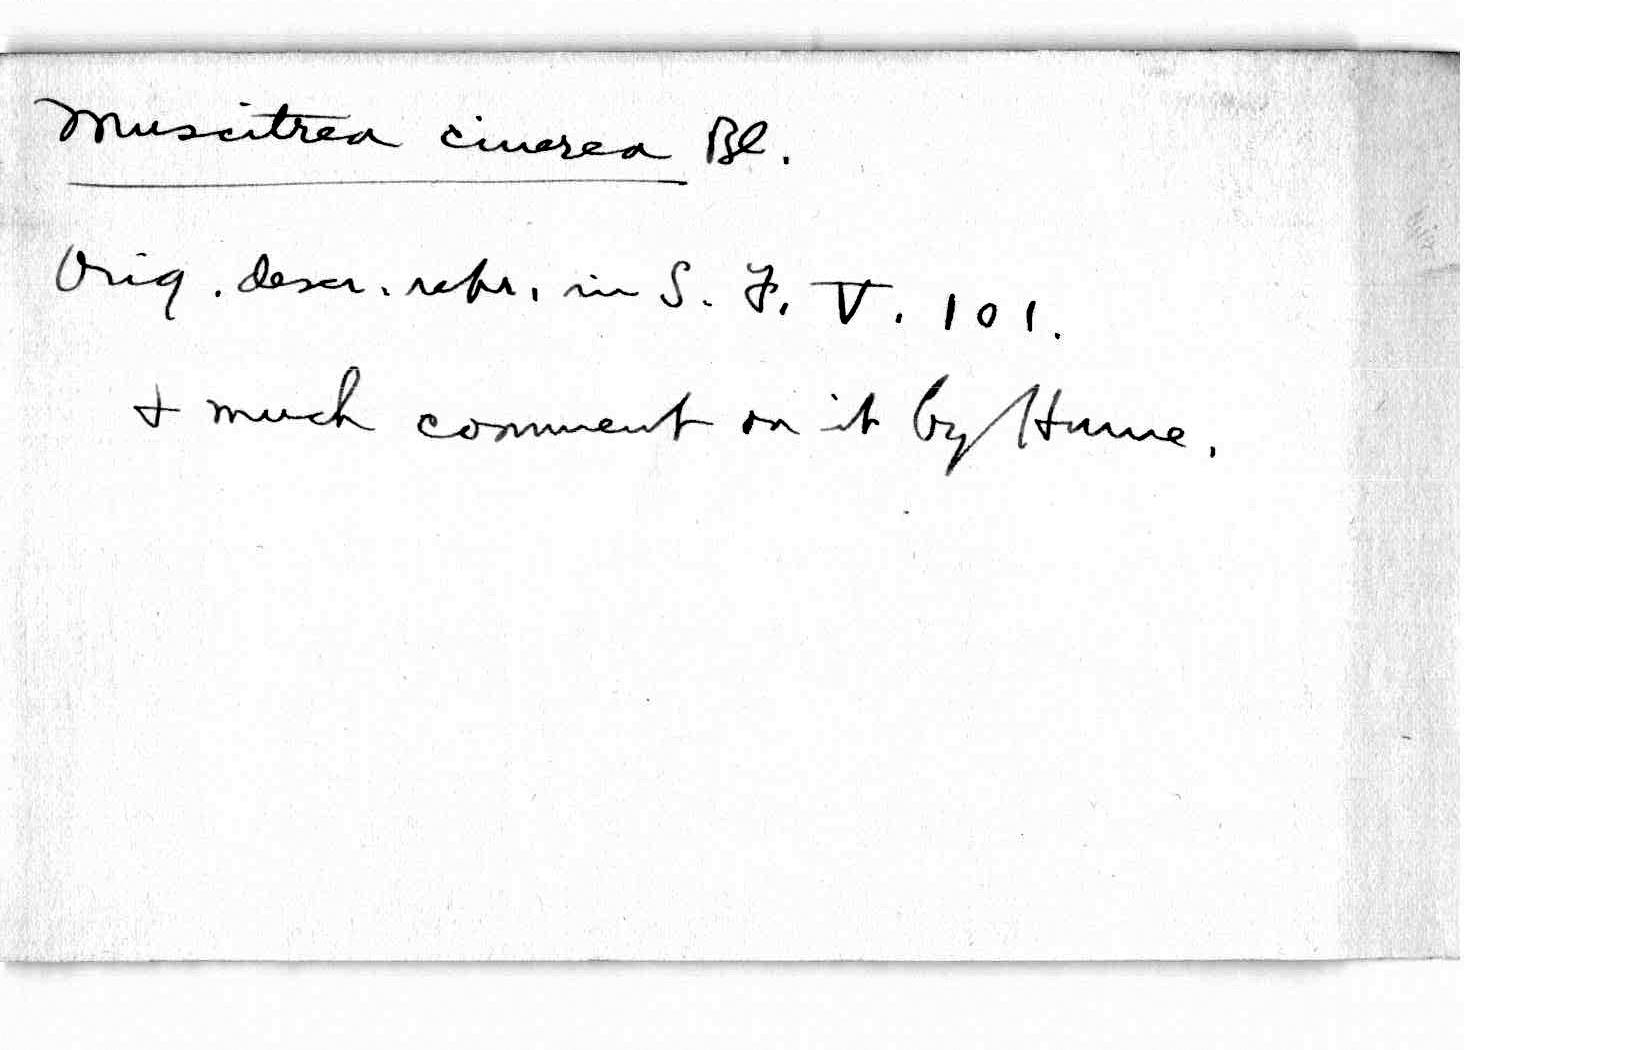 Muscitrea cinerea Bl.
Orig. descr. repr. in S. F. V. 101.
& much comment on it by Hume.